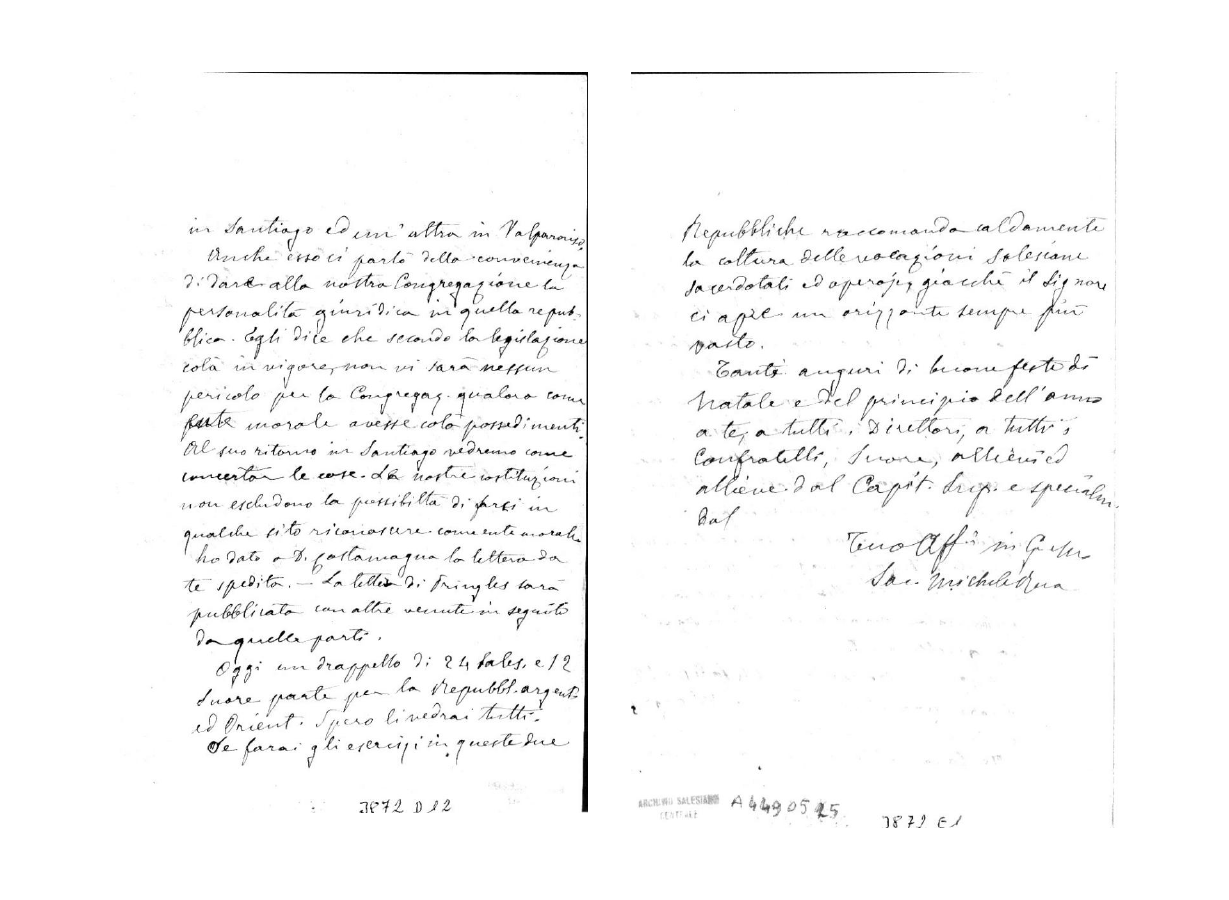 in Santiago ed un' altra in Valparaiso.
Anche esso ci parlò della convenienza
di dare alla nostra Congregazione la
personalità giuridica in quella repub-
blica. Egli dice che secondo la legislazione
colà in vigore, non vi sarà nessun
pericolo per la Congregaz. qualora come
ente morale avesse colà possedimenti.
Al suo ritorno in Santiago vedremo come
concertar le cose. Le nostre costituzioni
non escludono la possibiltà di farsi in
qualche sito riconoscere come ente morale
ho dato a D. Costamagna la lettera da
te spedita. – La lettera di Pringles sarà
pubblicata con altre venute in seguito
da quelle parti.
Oggi un drappello di 24 Sales. e 12
Suore parte per la Repubbl. argent.
ed Orient. Spero li vedrai tutti.
Se farai gli esercizi in queste due
J872 D12
Repubbliche raccomanda caldamente
la coltura delle vocazioni Salesiane
sacerdotali ed operaje, giacchè il Signore
ci apre un orizzonte sempre più
vasto.
Tanti auguri di buone feste di
Natale e del principio dell'anno
a te, a tutti i Direttori, a tutti i
Confratelli, Suore, allievi ed
allieve dal Capit. Sup. e specialm.
dal
Tuo Aff.º in G. e M.
Sac. Michele Rua
ARCHIVIO SALESIANO
CENTRALE
A4490525
J872 E1